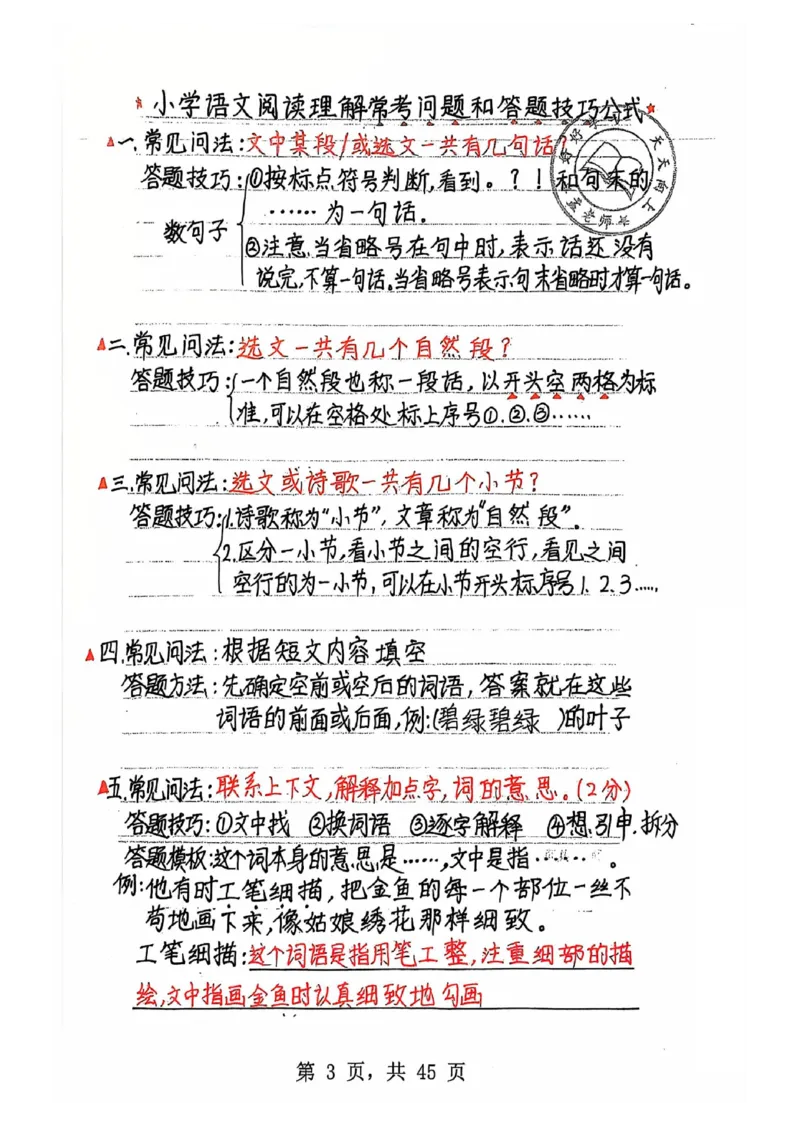 小学语文阅读理解常考问题和答题技巧公式
一、常见问法:文中某段/或选文一共有几句话?
答题技巧:①按标点符号判断,看到。?!和句末的
……为一句话。
数句子
②注意,当省略号在句中时,表示话还没有
说完,不算一句话。当省略号表示句末省略时才算一句话。
二、常见问法:选文一共有几个自然段?
答题技巧:一个自然段也称一段话,以开头空两格为标
准,可以在空格处标上序号①.②.③……
三、常见问法:选文或诗歌一共有几个小节?
答题技巧:1.诗歌称为“小节”,文章称为“自然段”。
2.区分一小节,看小节之间的空行,看见之间
空行的为一小节,可以在小节开头标序号1.2.3……
四、常见问法:根据短文内容填空
答题方法:先确定空前或空后的词语,答案就在这些
词语的前面或后面,例:(碧绿碧绿 )的叶子
五、常见问法:联系上下文,解释加点字,词的意思。(2分)
答题技巧:①文中找 ②换词语 ③逐字解释 ④想.引申.拆分
答题模板:这个词本身的意思是……,文中是指……。
例:他有时工笔细描,把金鱼的每一个部位一丝不
苟地画下来,像姑娘绣花那样细致。
工笔细描:这个词语是指用笔工整,注重细部的描
绘,文中指画金鱼时认真细致地勾画
第 3 页，共 45 页
天天向上
老师